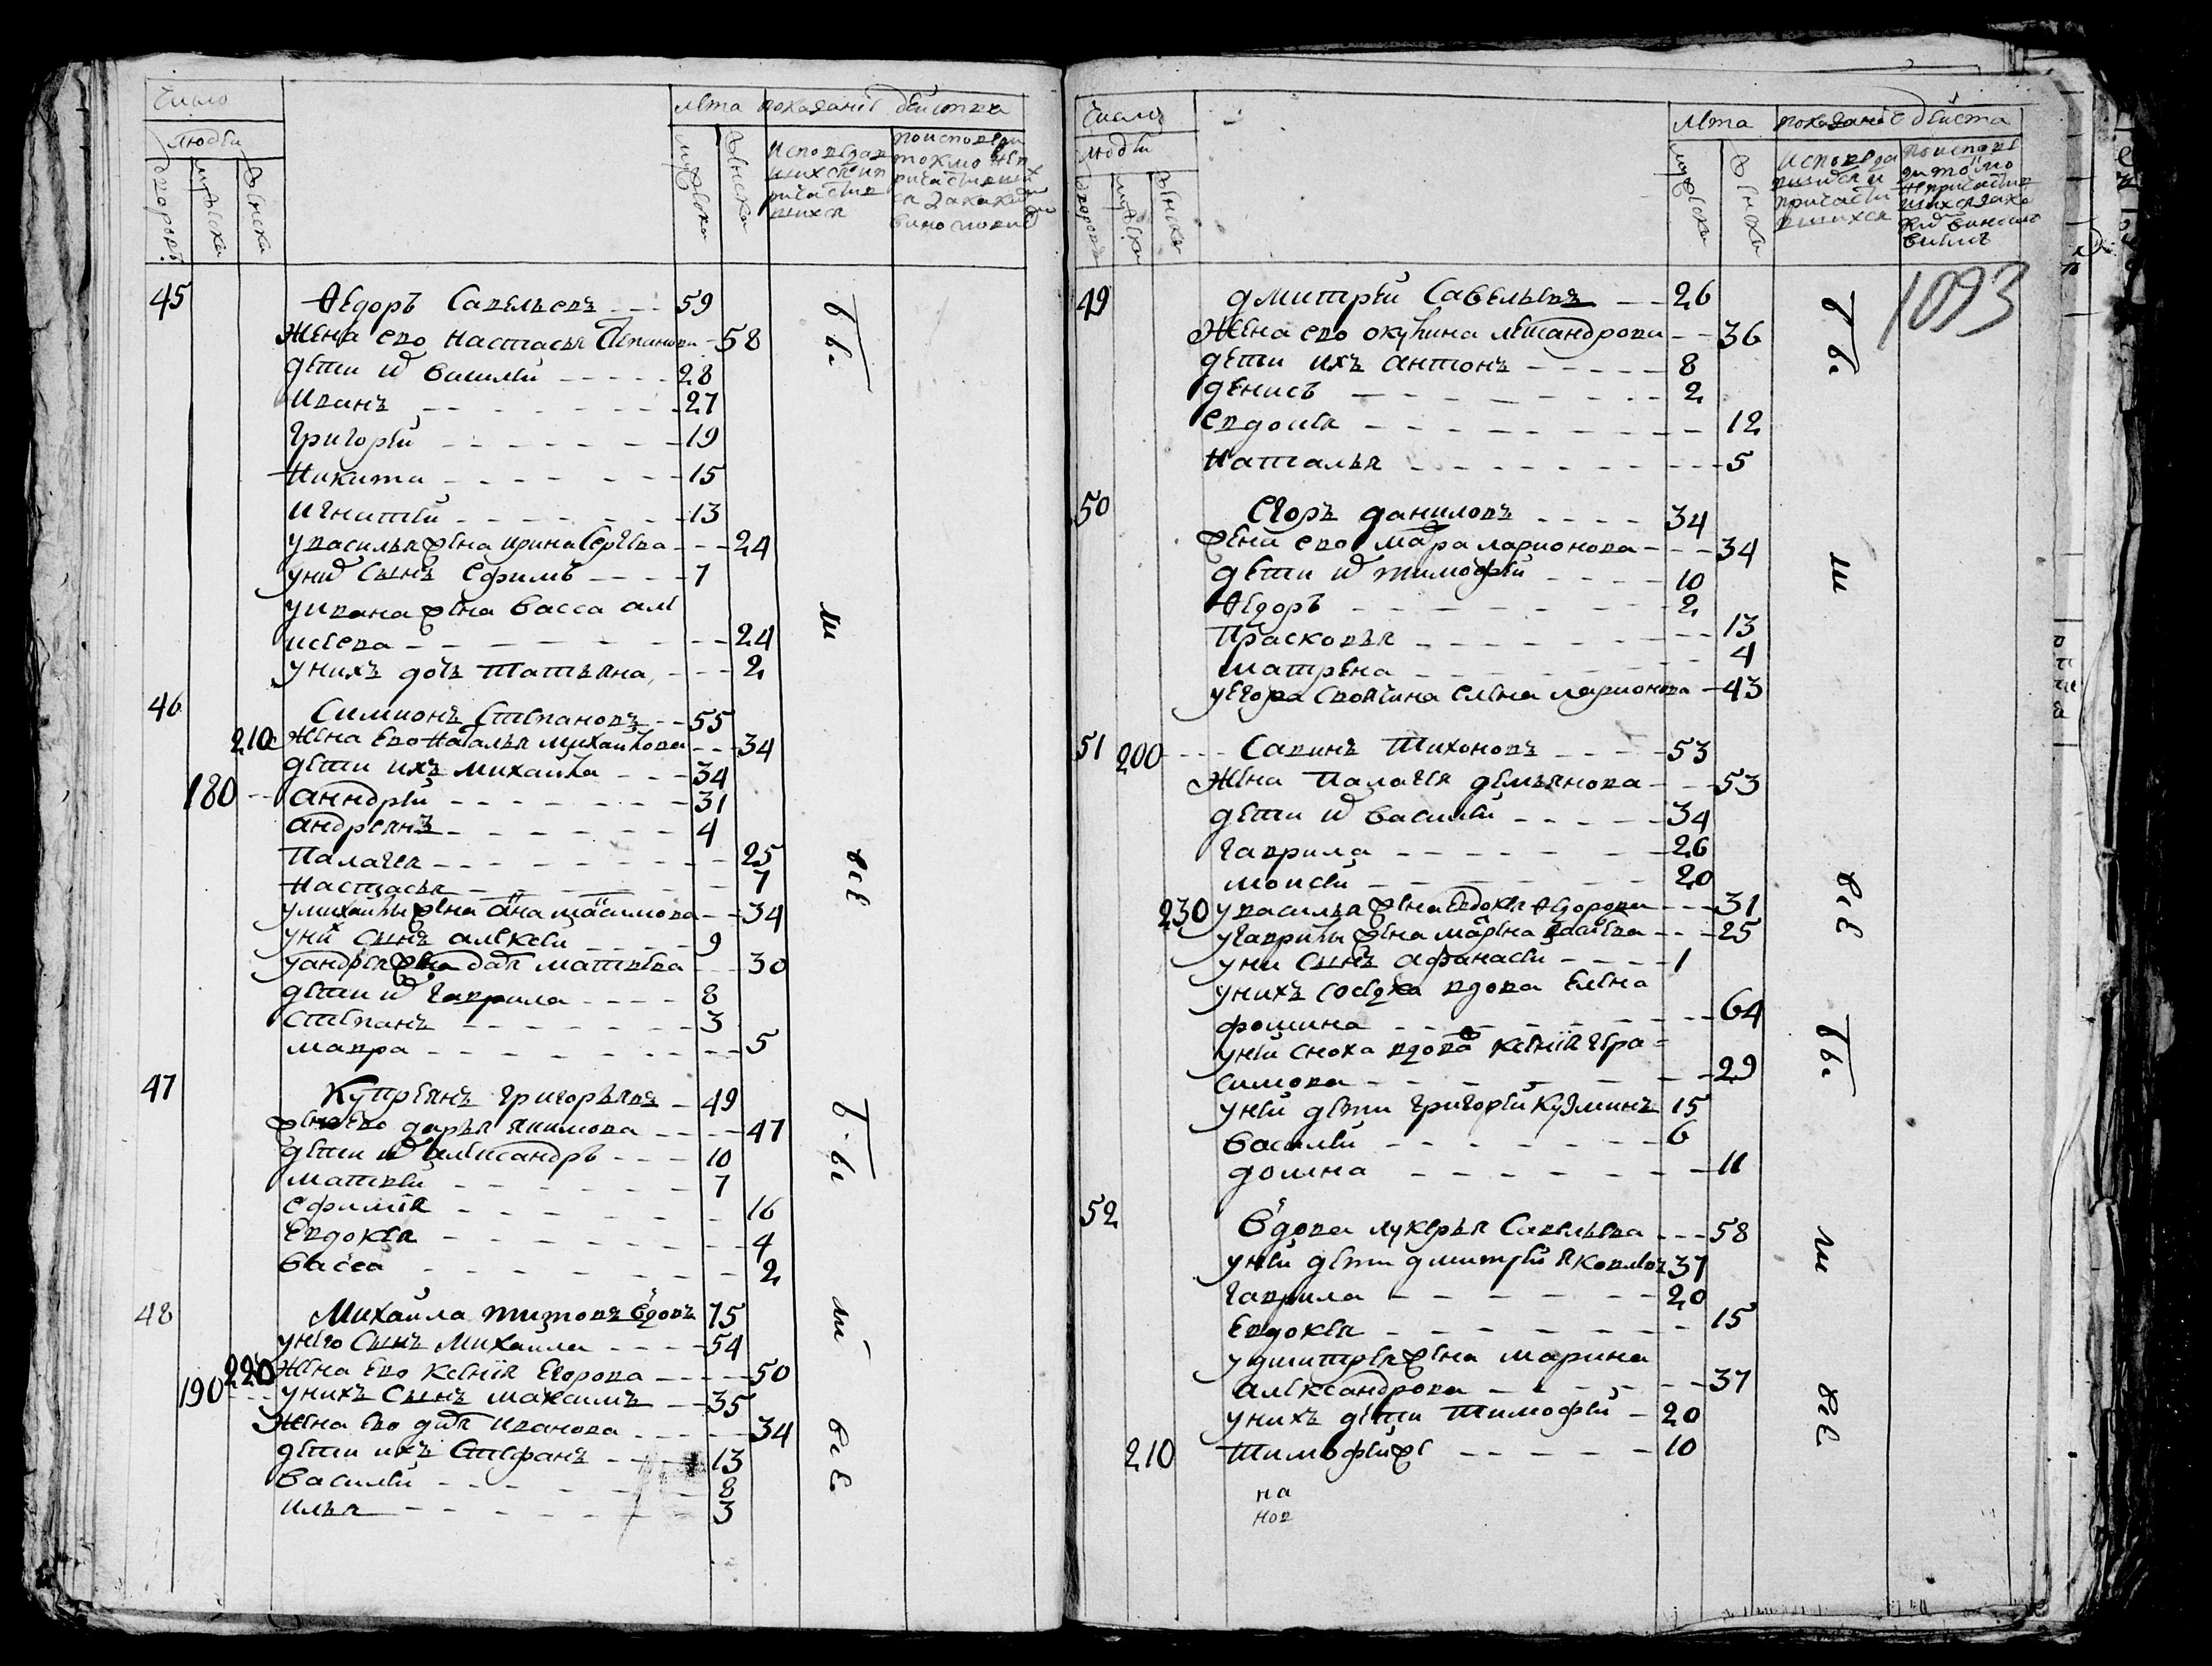 число
людей
дворовъ
мужска
женска
лѣта
мужска
женска
показаніе действа
исповедав
шихся ип
ричастив
шихся
поисповеди
токмо неп
ричастивши
ся закаким
виносло
45 Ѳедоръ Савельевъ 59
жена ево настасья степанова 58
дети их василей 28
иванъ 27
григорей 19
никита 15
игнатей 13
у василья жена ирина сергеева 24
у них сынъ ефимъ 7
у ивана жена васса але
ксеева 24
у нихъ дочь татьяна 2
46 Симионъ Степановъ 55
210 жена ево наталья михайлова 34
дети ихъ михайла 34
180 андрей 31
андреянъ 4
палагея 25
настасья 7
у михайлы жена анна максимова 34
у них сынъ алексей 9
у андрея жена дарья матвеева 30
дети их гаврила 8
степанъ 3
мавра 5
47 Купреянъ григорьевъ 49
жена ево дарья якимова 47
дети их александръ 10
матвей 7
ефимия 16
евдокея 4
васса 2
48 Михаила титовъ вдовъ 75
у него сынъ михаила 54
220 жена ево ксения егорова 50
190 у нихъ сынъ максимъ 35
жена ево дарья иванова 34
дети ихъ стефанъ 13
василей 8
илья 3
бы
ли
все
бы
ли
все
число
людей
дворовъ
мужска
женска
лѣта
мужска
женска
показаніе действа
исповеда
вшихся и
причасти
вшихся
поиспове
ди токмо
непричастив
шихся зака
ким винсло
виемъ
1093
49 дмитрей Савельевъ 26
жена ево окулина александрова 36
дети ихъ антонъ 8
денисъ 2
евдокея 12
наталья 5
50 Егоръ даниловъ 34
жена ево марфа ларионова 34
дети их тимофей 10
Ѳедоръ 2
прасковья 13
матрена 4
у егора своячина елена ларионова 43
51 200 Савинъ тихоновъ 53
жена палагея демьянова 53
дети их василей 34
гаврила 26
моисей 20
230 у василья жена евдокея Ѳедорова 31
у гаврилы жена марина 25
у них сынъ афанасей 1
у нихъ соседка вдова елена
фомина 64
у ней сноха вдова ксения гера=
симова 29
у ней дети григорей кузминъ 15
василей 6
домна 11
52 вдова лукерья савельева 58
у ней дети дмитрей яковлевъ 37
гаврила 20
евдокея 15
у дмитрея жена марина
александрова 37
у нихъ дети тимофей 20
210 тимофей же 10
на
нов
бы
ли
все
бы
ли
все